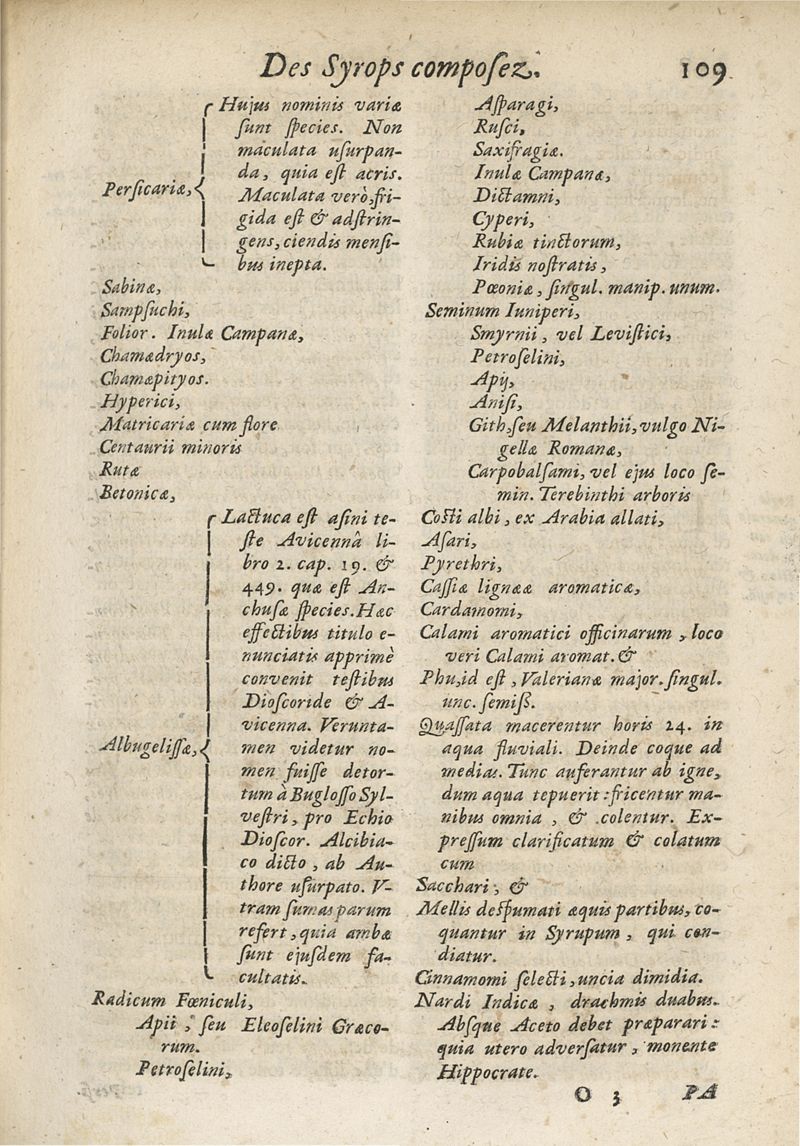 Des Syrops composez. 109
Persicariæ,
Hujus nominis variæ
sunt species. Non
maculata usurpan-
da, quia est acris.
Maculata verò, fri-
gida est & adstrin-
gens, ciendis mensi-
bus inepta.
Sabinæ,
Sampsuchi,
Folior. Inulæ Campanæ,
Chamædryos,
Chamæpityos.
Hyperici,
Matricariæ cum flore
Centaurii minoris
Rutæ
Betonicæ,
Albugelissæ,
Lactuca est asini te-
ste Avicennâ li-
bro 2. cap. 19. &
449. quæ est An-
chusæ species. Hæc
effectibus titulo e-
nunciatis apprimè
convenit testibus
Dioscoride & A-
vicenna. Verunta-
men videtur no-
men fuisse detor-
tum à Buglosso Syl-
vestri, pro Echio
Dioscor. Alcibia-
co dicto, ab Au-
thore usurpato. V-
tram sumas parum
refert, quia ambæ
sunt ejusdem fa-
cultatis.
Radicum Fœniculi,
Apii, seu Eleoselini Græco-
rum.
Petroselini,
Asparagi,
Rusci,
Saxifragiæ.
Inulæ Campanæ,
Dictamni,
Cyperi,
Rubiæ tinctorum,
Iridis nostratis,
Pœoniæ, singul. manip. unum.
Seminum Iuniperi,
Smyrnii, vel Levistici,
Petroselini,
Apij,
Anisi,
Gith, seu Melanthii, vulgo Ni-
gellæ Romanæ,
Carpobalsami, vel ejus loco se-
min. Terebinthi arboris
Costi albi, ex Arabia allati,
Asari,
Pyrethri,
Cassiæ ligneæ aromaticæ,
Cardamomi,
Calami aromatici officinarum, loco
veri Calami aromat. &
Phu, id est, Valerianæ major. singul.
unc. semiss.
Quassata macerentur horis 24. in
aqua fluviali. Deinde coque ad
medias. Tunc auferantur ab igne,
dum aqua tepuerit: fricentur ma-
nibus omnia, & colentur. Ex-
pressum clarificatum & colatum
cum
Sacchari, &
Mellis despumati æquis partibus, co-
quantur in Syrupum, qui con-
diatur.
Cinnamomi selecti, uncia dimidia.
Nardi Indicæ, drachmis duabus.
Absque Aceto debet præparari:
quia utero adversatur, monente
Hippocrate.
O 3 PA